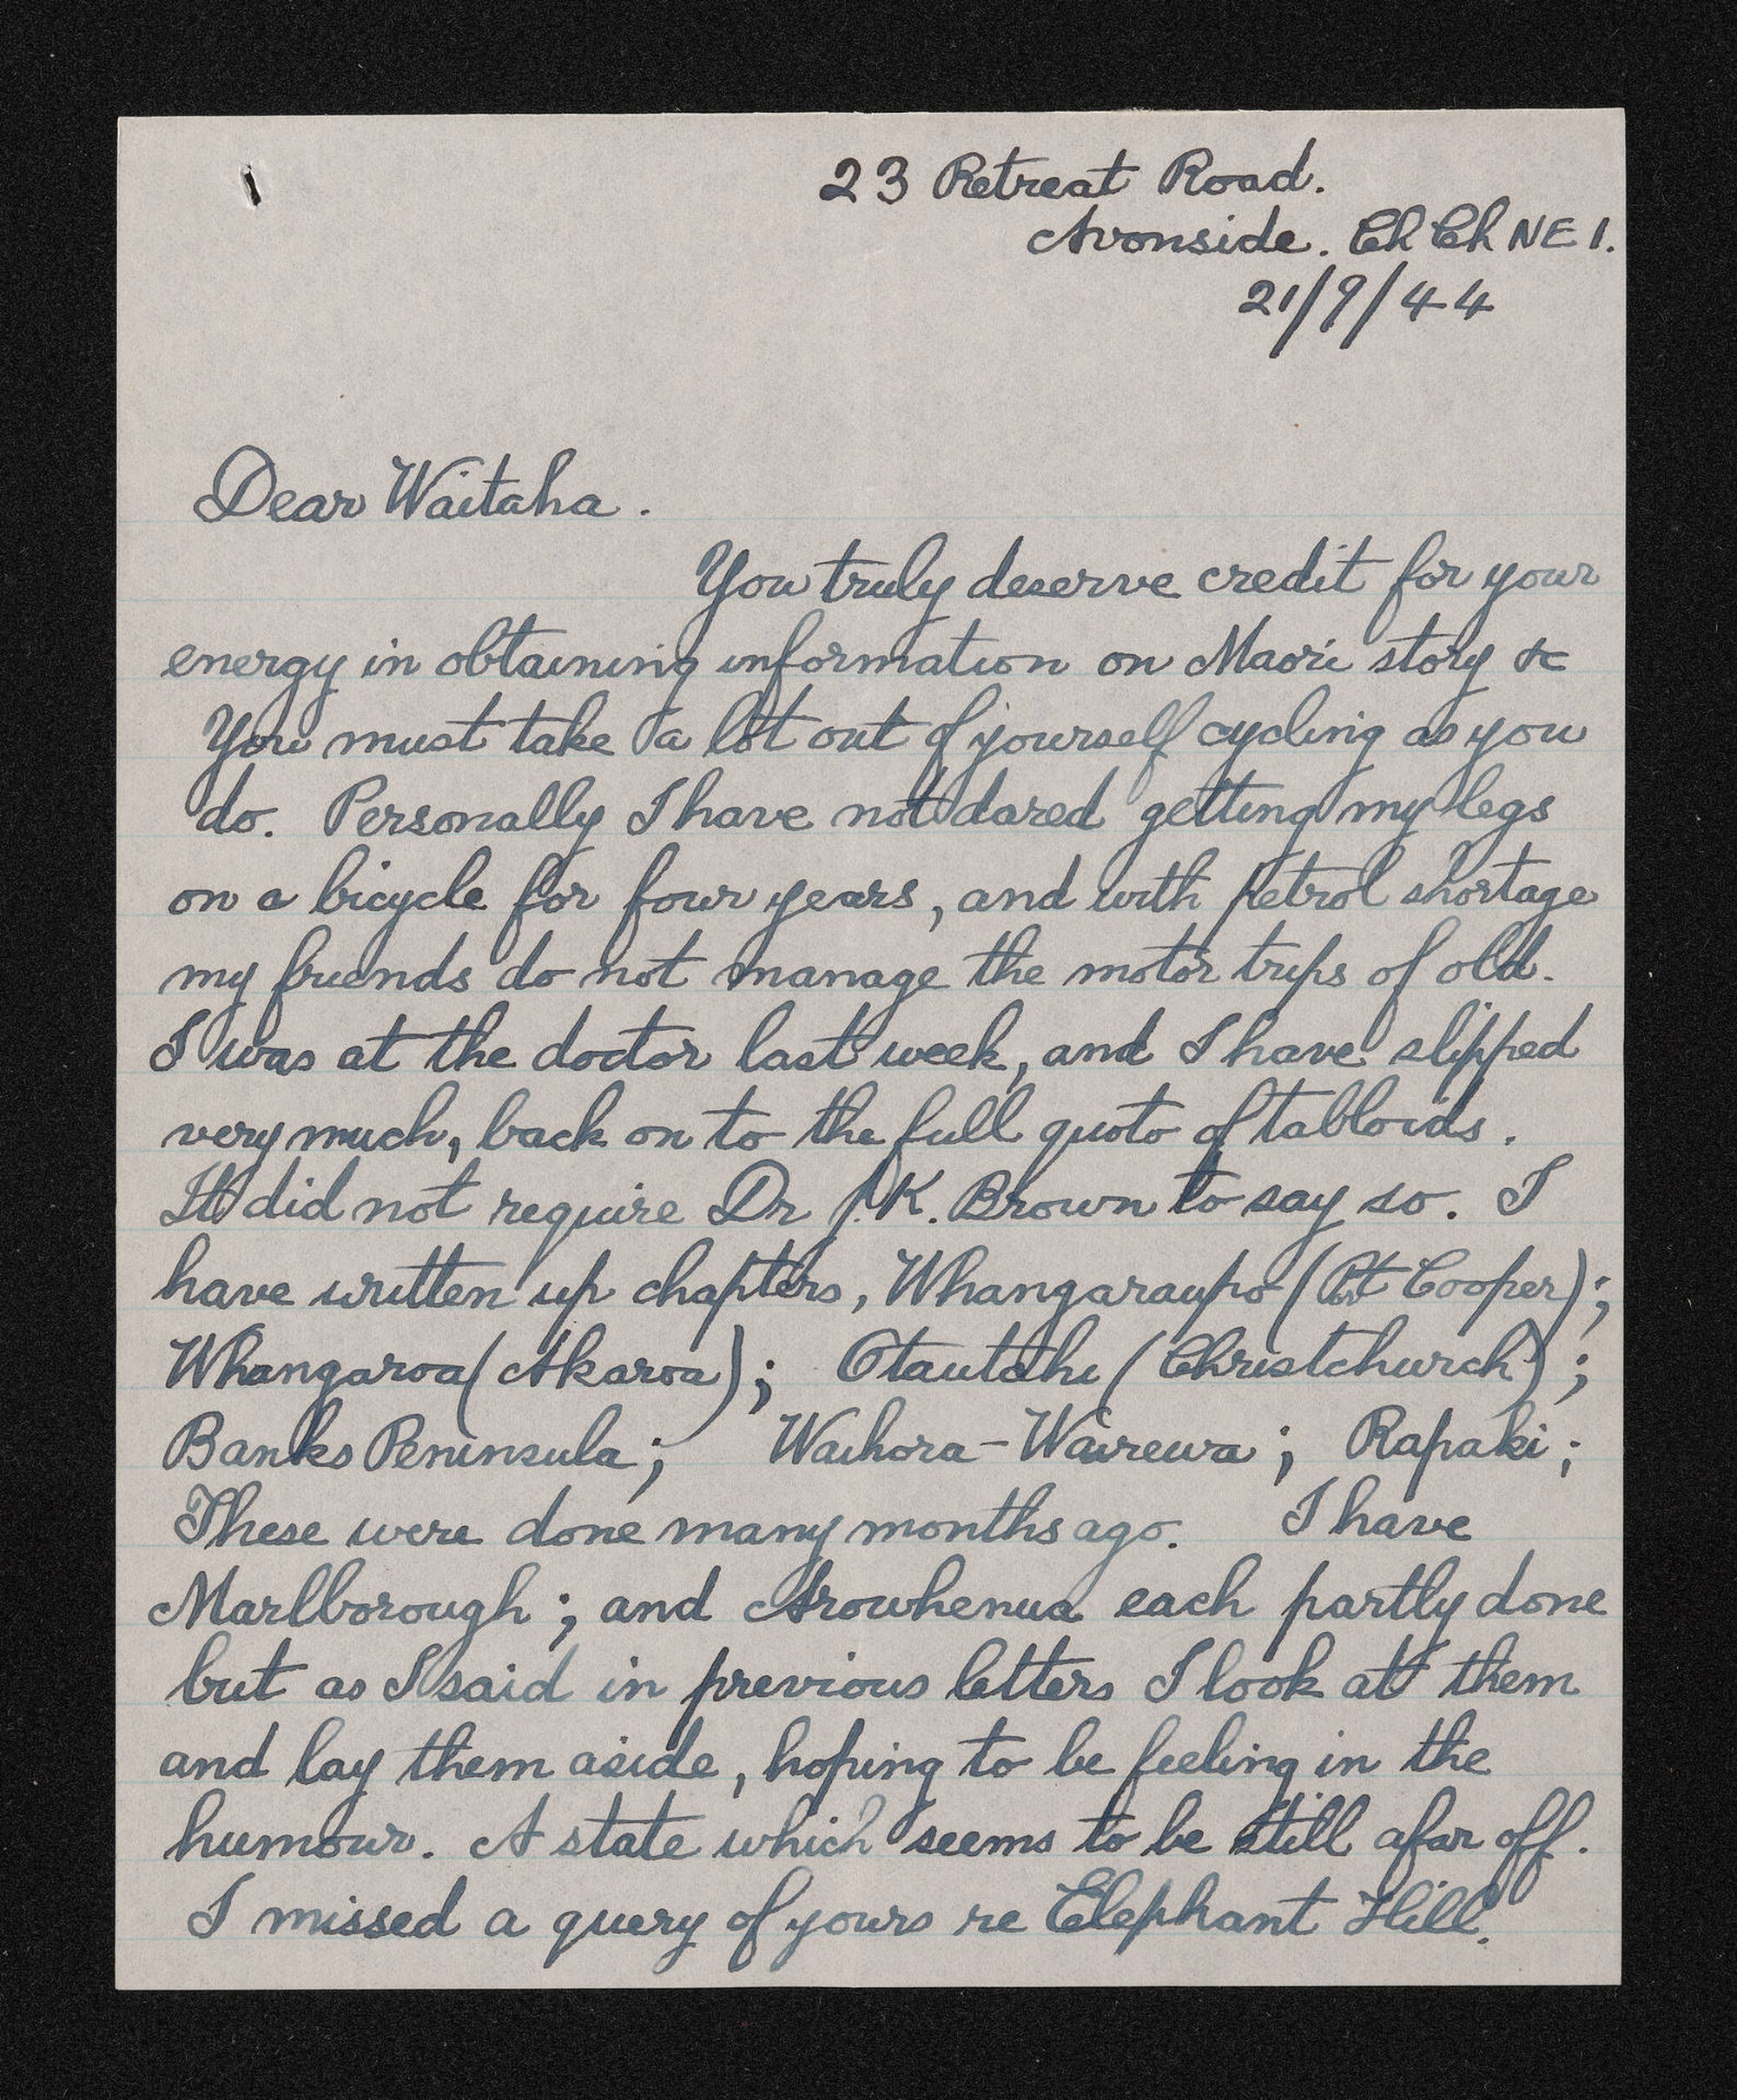 23 Retreat Road.
Avonside. Ch Ch NE 1.
21/9/44
Dear Waitaha.
You truly deserve credit for your
energy in obtaining information on Maori story &c
You must take a lot out of yourself cycling as you
do. Personally I have not dared getting my legs
on a bicycle for four years, and with petrol shortage
my friends do not manage the motor trips of old.
I was at the doctor last week, and I have slipped
very much, back on to the full quoto of tabloids.
It did not require Dr J.K. Brown to say so. I
have written up chapters, Whangaraupo (Pt Cooper);
Whangaroa (Akaroa); Otautahi (Christchurch);
Banks Peninsula; Waihora-Wairewa; Rapaki;
These were done many months ago. I have
Marlborough; and Arowhenua each partly done
but as I said in previous letters I look at them
and lay them aside, hoping to be feeling in the
humour. A state which seems to be still afar off.
I missed a query of yours re Elephant Hill.